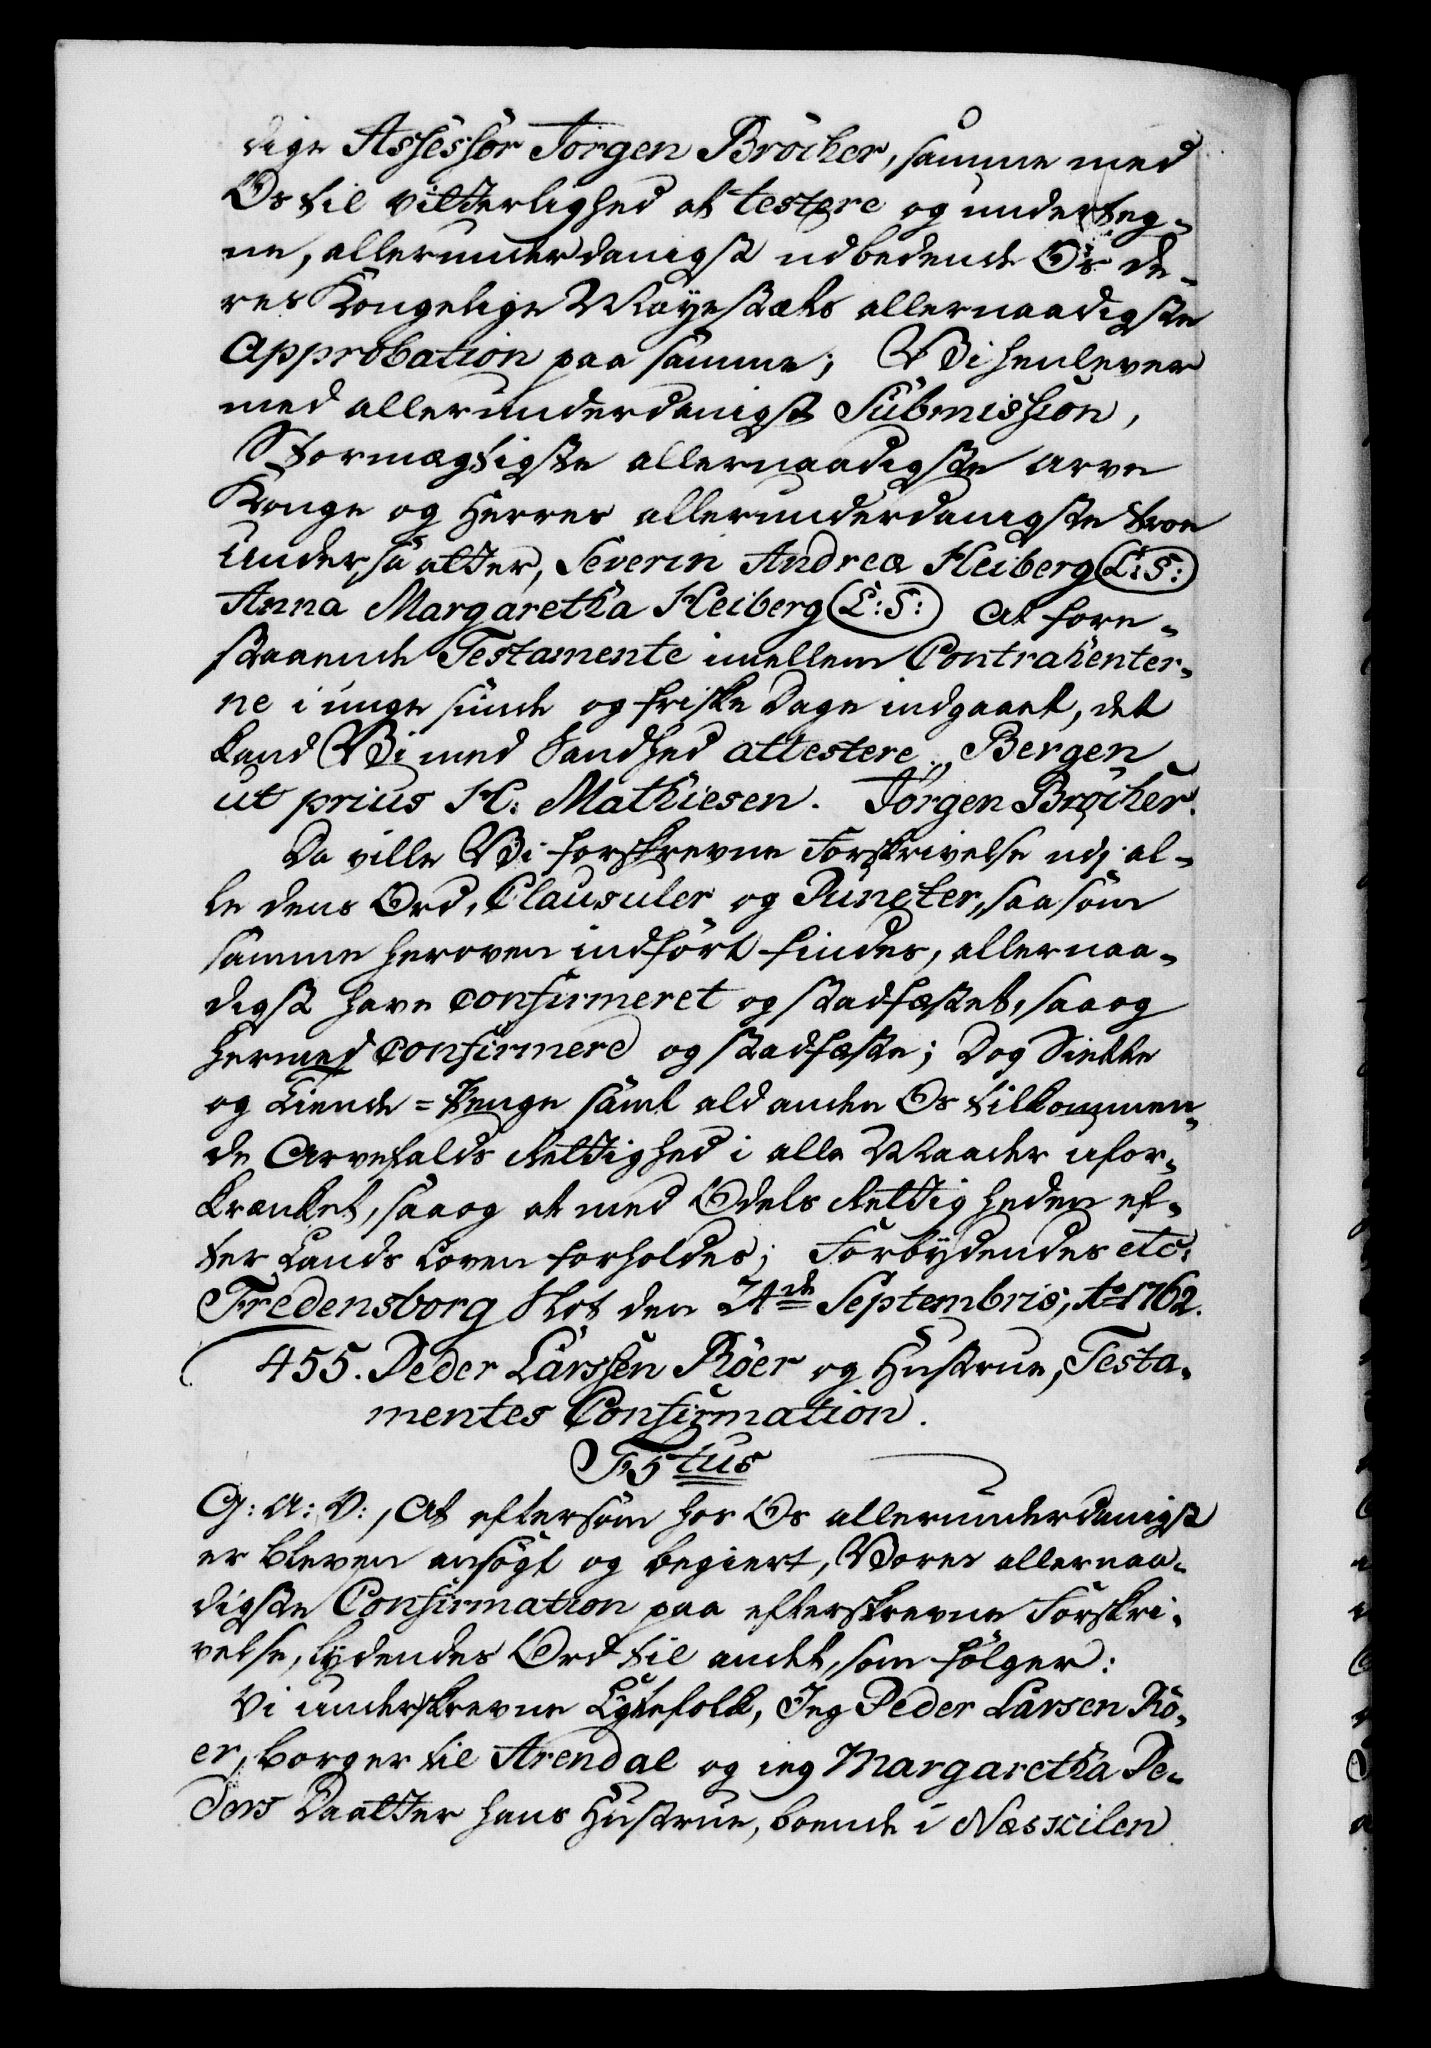 dige Assessor Jörgen Bröcher, samme med
Os til vitterlighed at testere og underteg-
ne, allerunderdanigst udbedende Os De-
res Kongelige Mayestæts allernaadigste
Approbation paa samme; Vi henlever
med allerunderdanigst Submission,
Stormægtigste allernaadigste Arve
Konge og Herres allerunderdanigste troe
Undersaatter, Severin Andreæ Heiberg (L:S:)
Anna Margaretha Heiberg (L:S:) At fore-
staaende Testamente imellem Contrahenter-
ne i unge sunde og friske Dage indgaaet, det
kand Vi med Sandhed attestere. Bergen
ut prius H: Mathiesen. Jörgen Bröcher.
Da ville Vi forskrevne Forskrivelse udj al-
le dens Ord, Clausuler og Puncter, saasom
samme heroven indført findes, allernaa-
digst have confirmeret og stadfæstet, saa og
hermed confirmere og stadfæste; Dog Siette
og Tiende = Penge samt ald anden Os tilkommen-
de Arvefalds Rettighed i alle Maader ufor-
krænket, saa og at med Odels Rettigheden ef-
ter Lands Loven forholdes; Forbydendes etc:
Fredensborg Slot den 24de Septembris, Ao 1762.
455. Peder Larssen Röer og Hustrue, Testa-
mentes Confirmation.
F5tus
G: A: V:, At eftersom hos Os allerunderdanigst
er bleven ansøgt og begiert, Vores allernaa-
digste Confirmation paa efterskrevne Forskri-
velse, lydendes Ord til andet, som følger:
Vi underskrevne Egtefolk, Jeg Peder Larsen Rö-
er, borger til Arendal og ieg Margaretha Pe-
ders Daatter hans Hustrue, boende i Næskilen